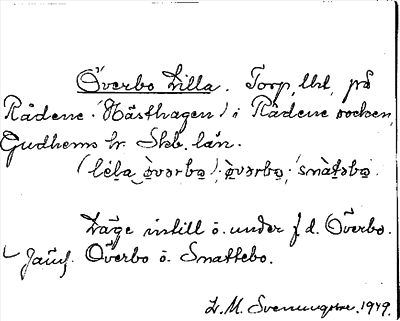 Överbo Lilla. Torp, lht, på
Rådene (Hästhagen) i Rådene socken,
Gudhems hr. Skb. län.
(lɩ́la ö̀vərbo), ö̀vərbo, snàtəbo.
Läge intill o. under f.d. Överbo.
Jämf. Överbo o. Snattebo.
Lr. M. 1949.